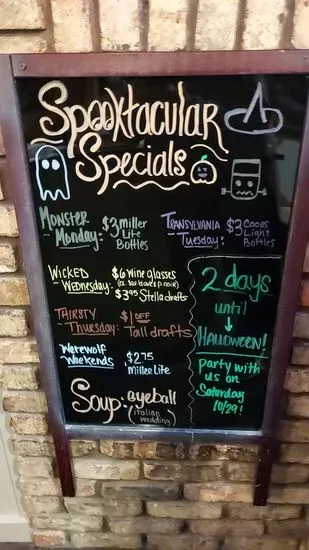 Spooktacular
Specials
Monster
Monday:
$3 Miller
Lite
Bottles
Transylvania
Tuesday:
$3 Coors
Light
Bottles
Wicked
Wednesday:
$6 Wine glasses
$3.95 Stella drafts
Thirsty
Thursday:
$1 OFF
Tall drafts
Werewolf
Weekends
$2.75
Miller Lite
2 days
until
↓
HALLOWEEN!
Party with
us on
Saturday
10/29!
Soup: eyeball
(italian
wedding)